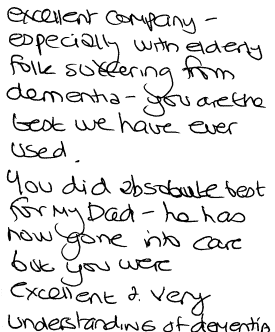 excellent company -
especially with elderly
folk suffering from
dementia - you are the
best we have ever
used.
You did absolute best
for my Dad - he has
now gone into care
but you were
excellent & very
understanding of dementia